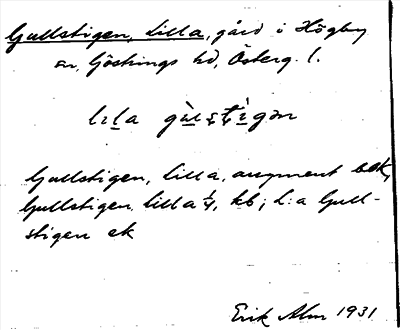 Gullstigen, Lilla, gård i Högby
sn, Göstrings hd, Österg. l.
Gullstigen, Lilla, augment
Gullstigen, Lilla ¼, kb; L:a Gull-
stigen ek
Erik Alm 1931